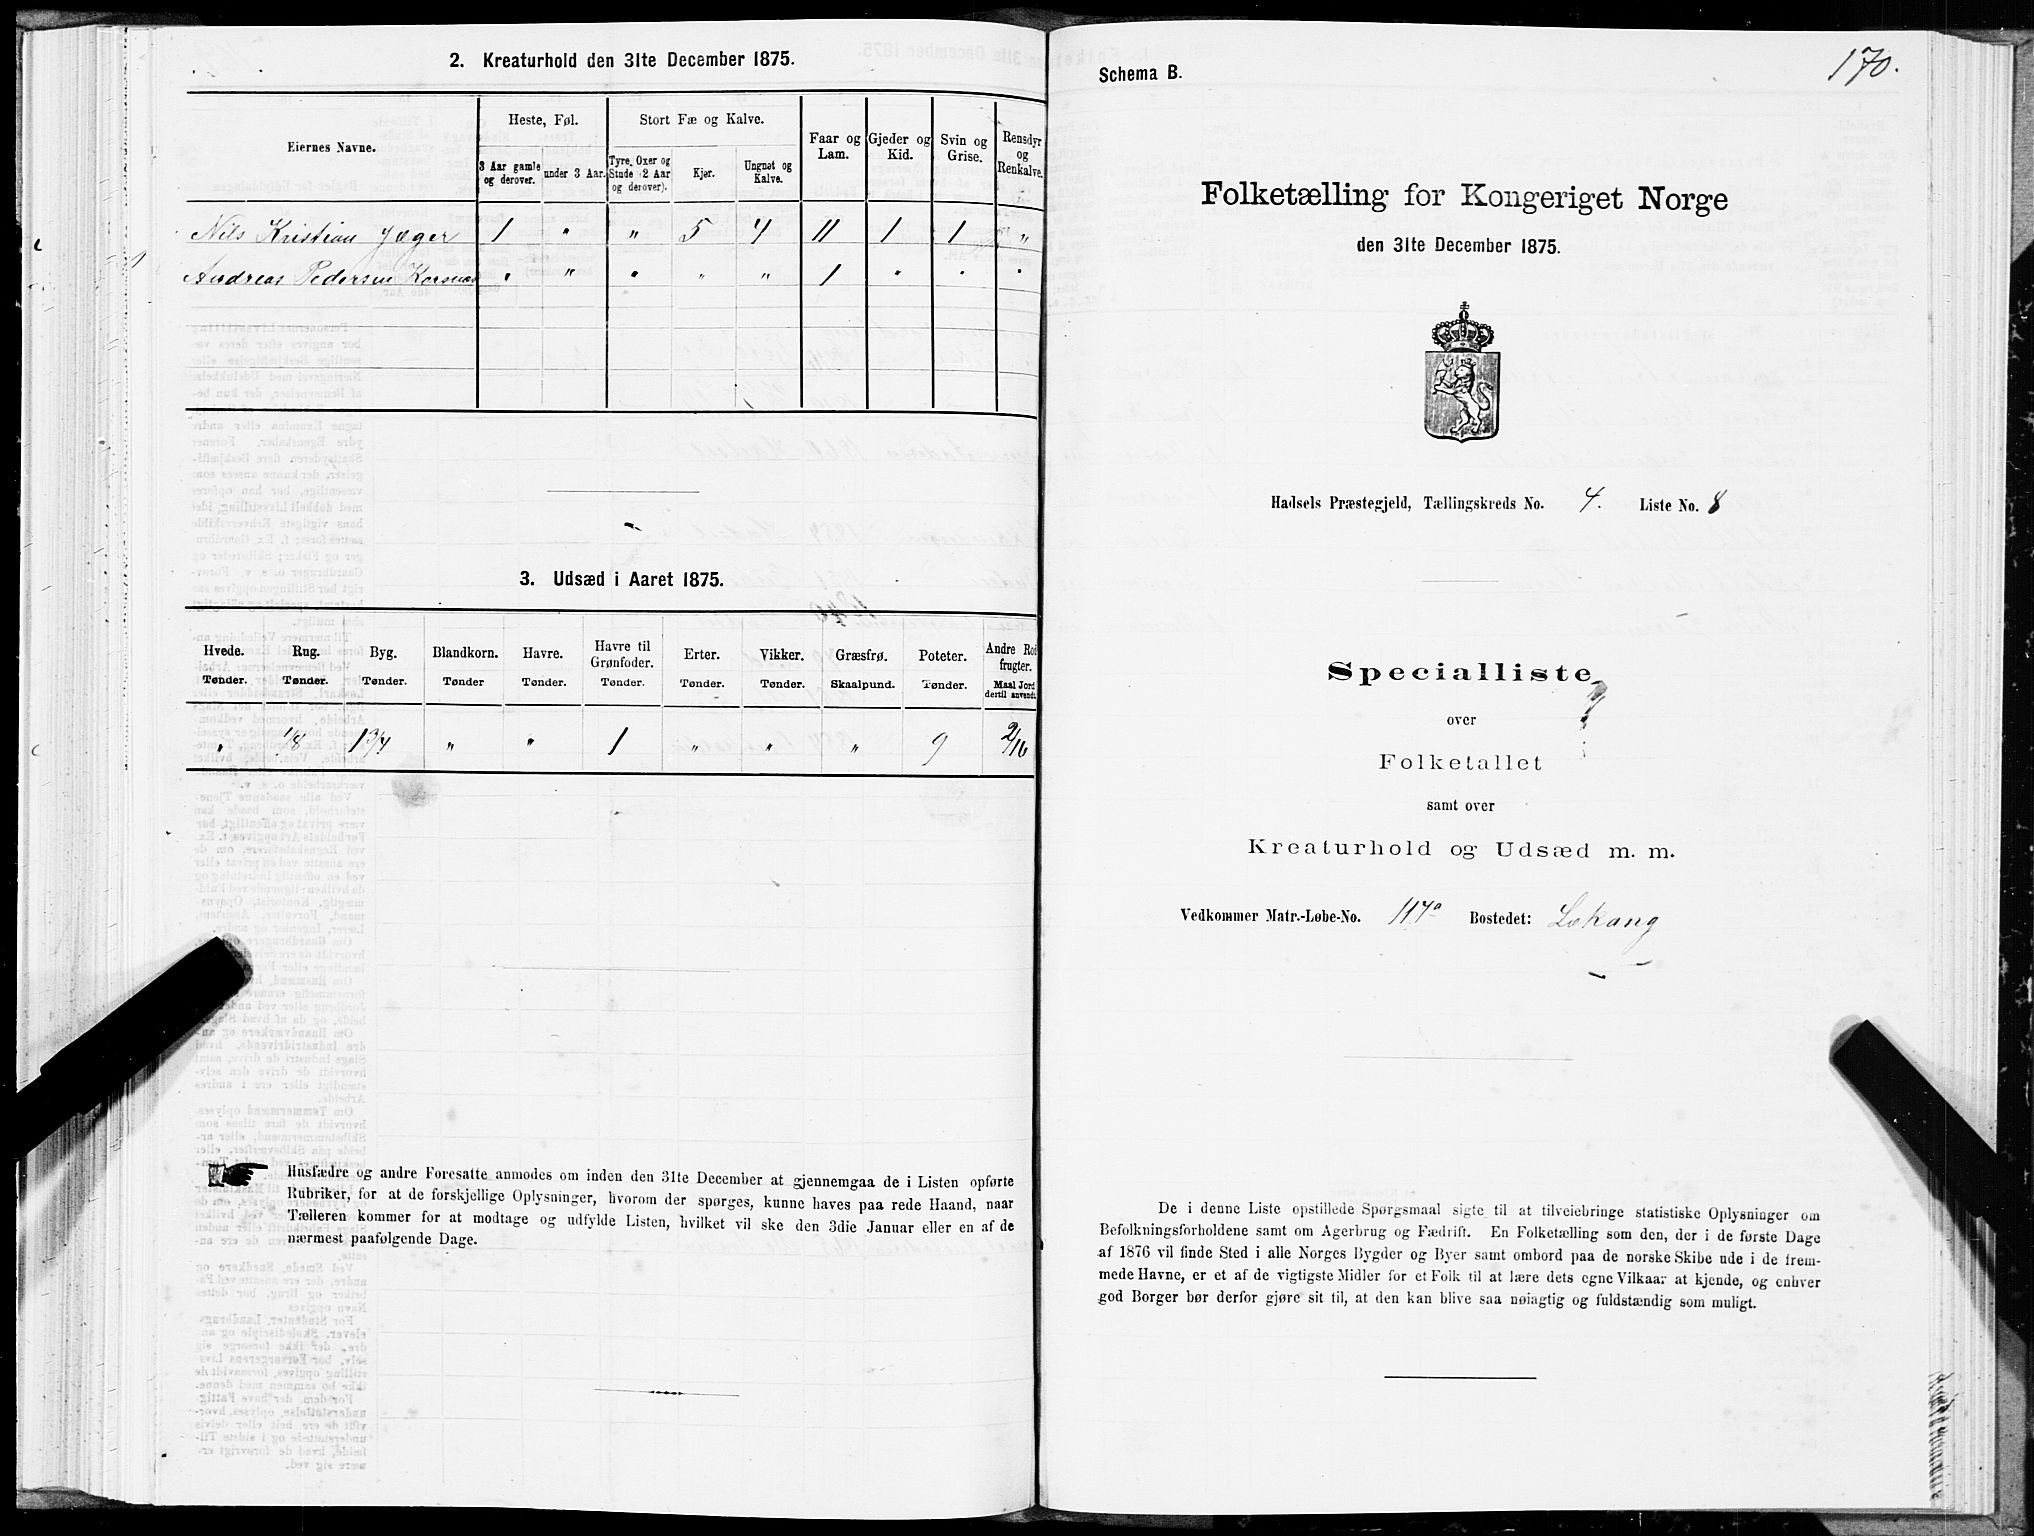 2. Kreaturhold den 31te December 1875.
Eiernes Navne.
Heste, Føl.
Stort Fæ og Kalve.
Faar og Lam.
Gjeder og Kid.
Svin og Grise.
Rensdyr og Renkalve.
3 Aar gamle og derover.
under 3 Aar.
Tyre, Oxer og Stude (2 Aar og derover).
Kjør.
Ungnøt og Kalve.
Nils Kristian Jæger 1 " " 5 4 11 1 1 "
Andreas Pedersen Korsnæs " " " " " 1 " " "
3. Udsæd i Aaret 1875.
Hvede. Rug. Byg. Blandkorn. Havre. Havre til Grønfoder. Erter. Vikker. Græsfrø. Poteter. Andre Rodfrugter.
Tønder. Tønder. Tønder. Tønder Tønder. Tønder. Tønder. Tønder. Skaalpund. Tønder. Maal Jord dertil anvendt.
" 1/8 1 3/4 " " 1 " " " 9 2/16
Husfædre og andre Foresatte anmodes om inden den 31te December at gjennemgaa de i Listen opførte
Rubriker, for at de forskjellige Oplysninger, hvorom der spørges, kunne haves paa rede Haand, naar
Tælleren kommer for at modtage og udfylde Listen, hvilket vil ske den 3die Januar eller en af de
nærmest paafølgende Dage.
170.
Schema B.
Folketælling for Kongeriget Norge
den 31te December 1875.
Hadsels Præstegjeld, Tællingskreds No. 4. Liste No. 8
Specialliste
over
Folketallet
samt over
Kreaturhold og Udsæd m. m.
Vedkommer Matr.-Løbe-No. 117a Bostedet: Lekang
De i denne Liste opstillede Spørgsmaal sigte til at tilveiebringe statistiske Oplysninger om
Befolkningsforholdene samt om Agerbrug og Fædrift. En Folketælling som den, der i de første Dage
af 1876 vil finde Sted i alle Norges Bygder og Byer samt ombord paa de norske Skibe ude i de frem-
mede Havne, er et af de vigtigste Midler for et Folk til at lære dets egne Vilkaar at kjende, og enhver
god Borger bør derfor gjøre sit til, at den kan blive saa nøiagtig og fuldstændig som muligt.